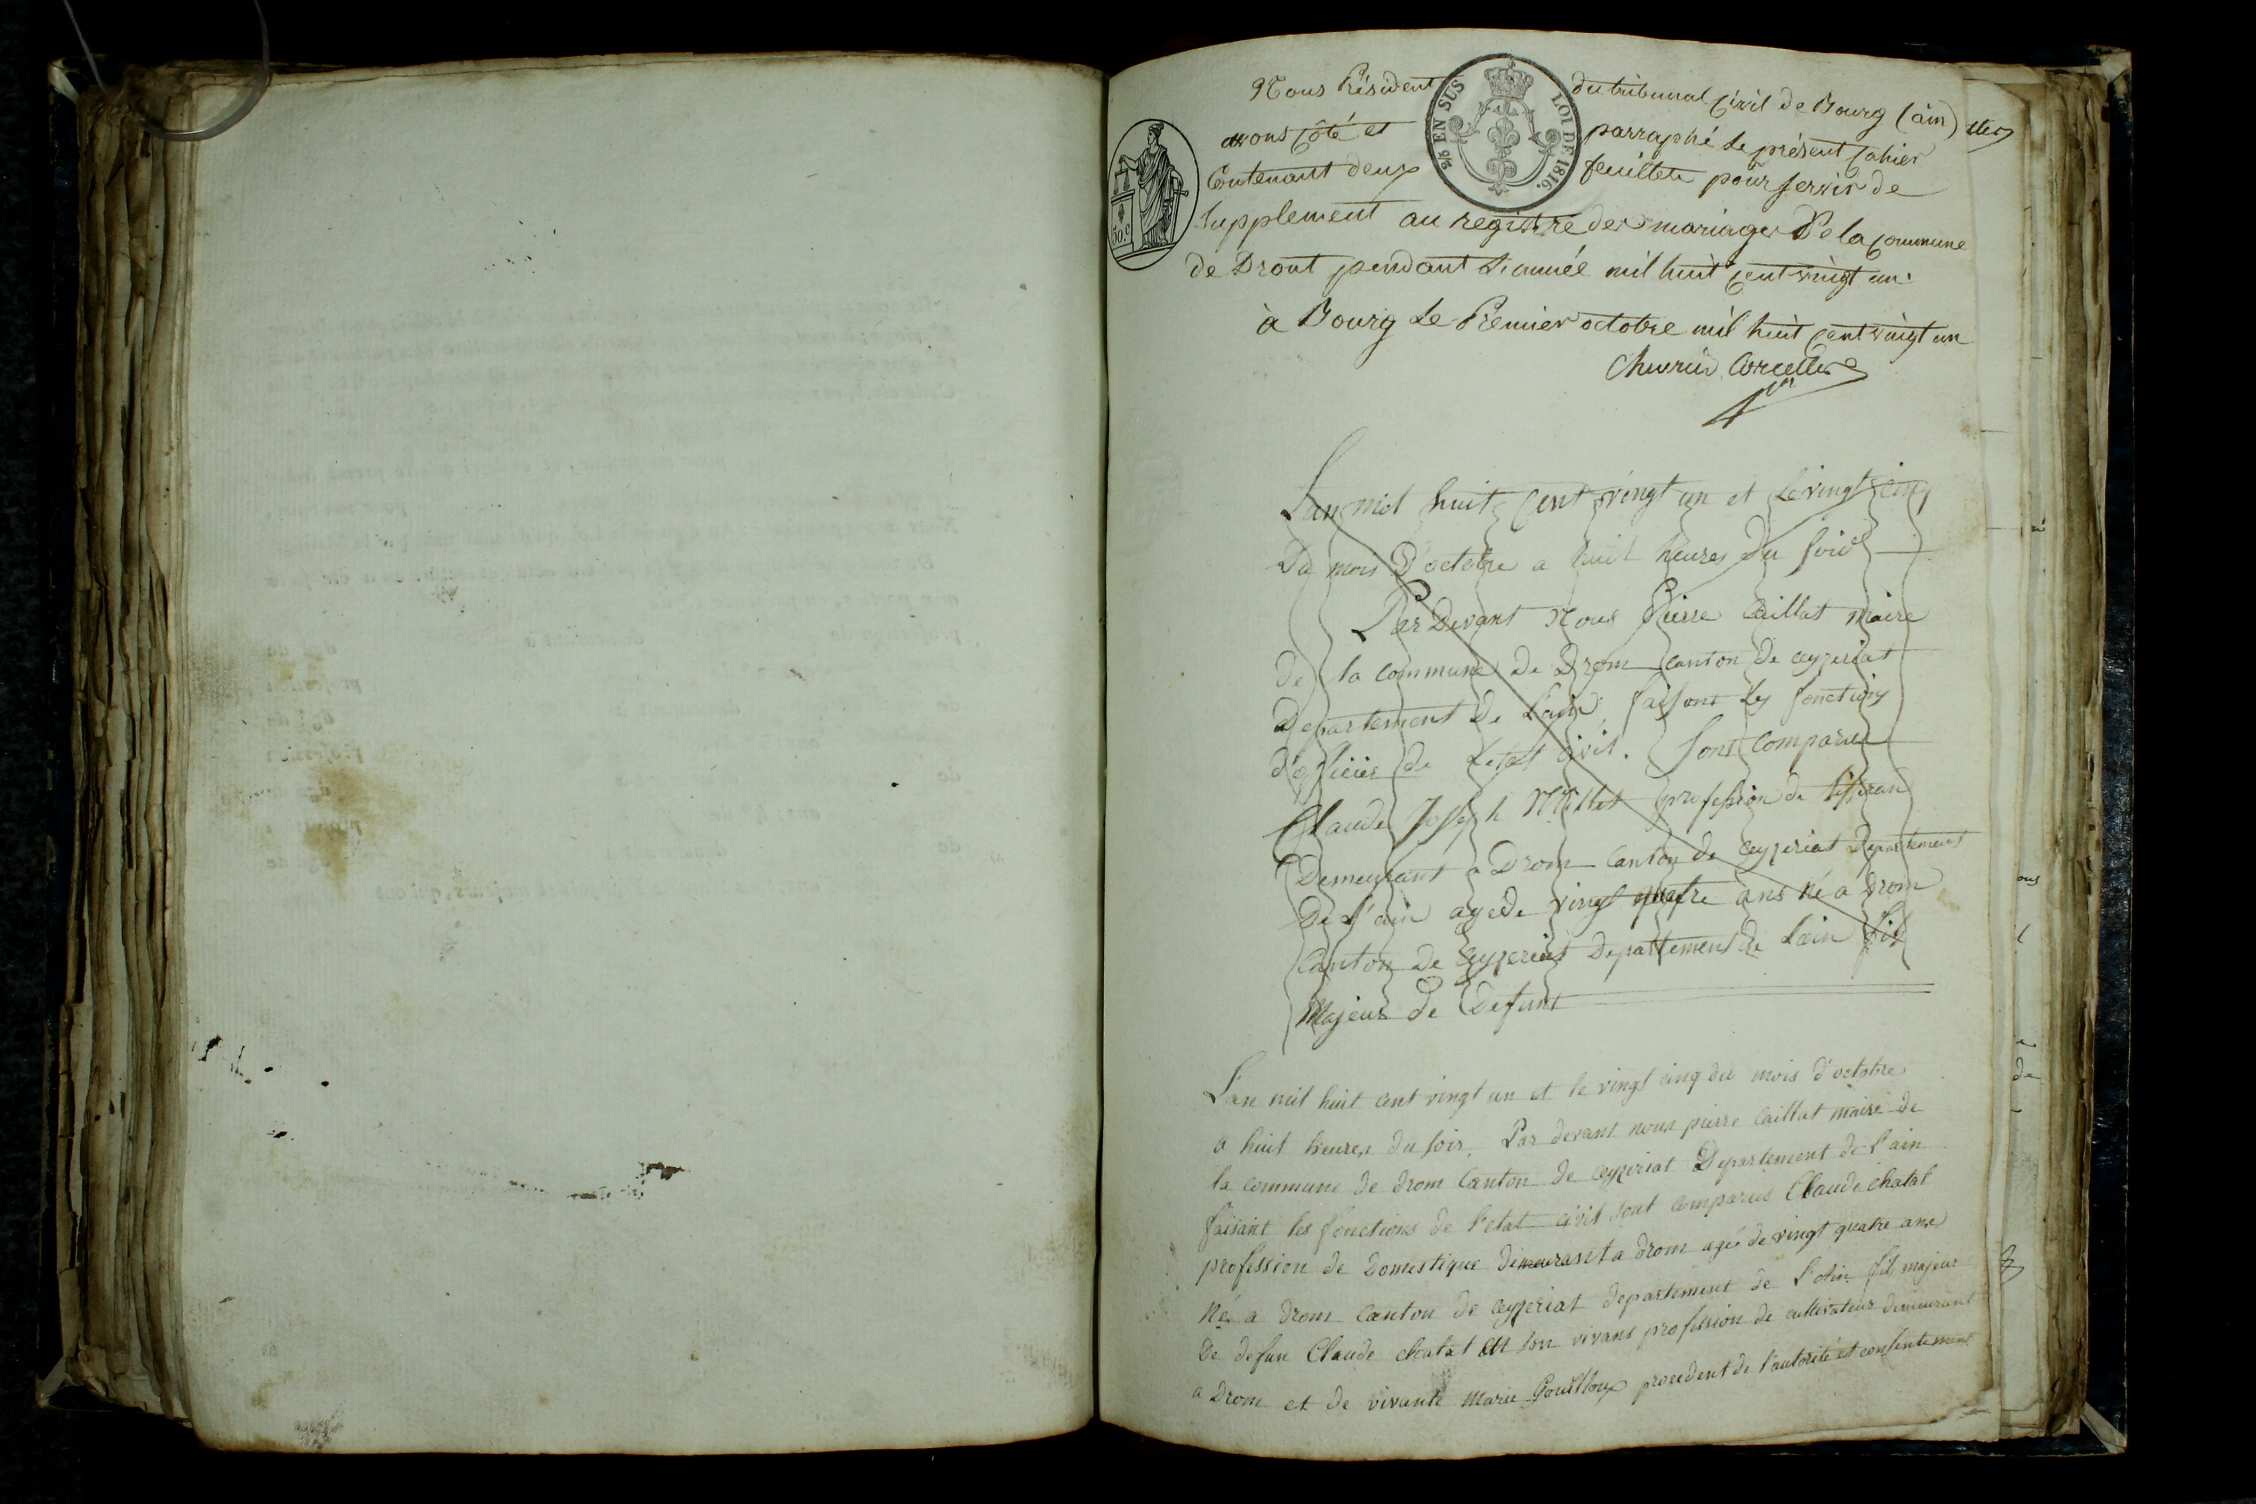 Nous Président du tribunal civil de Bourg (ain)
avons côté et parraphé le présent cahier
Contenant deux feuillets pour servir de
Supplement au registre des mariages De la commune
de Drom pendant l'année mil huit cent vingt un.
à Bourg Le Premier octobre mil huit cent vingt un
2/6 EN SUS LOI DE 1816.
50.c
L'an mil huit cent vingt un et le vingt cinq
Du mois D'octobre a huit heures Du soir
Par Devant Nous Pierre Caillat Maire
De la commune De Drom canton De ceyzeriat
Departement De Lain, faisant Les fonctions
d'officier de Letat Civil. Sont Comparu
Claude Joseph Millet profession de tisseran
Demeurant a Drom Canton de Ceyzeriat Departement
De L'ain age de vingt quatre ans né a Drom
Canton de Ceyzeriat Departement de Lain fils
Majeur de Defunt
L'an mil huit cent vingt un et le vingt cinq du mois d'octobre
a huit heures du soir, Par devant nous pierre Caillat maire de
la commune de drom Canton de ceyzeriat Departement de l'ain
faisant les fonctions de l'etat civil sont comparus Claude chatal
profession de Domestique demeurant a drom agé de vingt quatre ans
Né a drom Canton de ceyzeriat departement de l'ain fils majeur
De defun Claude chatal en son vivans profession de cultivateur demeurant
a Drom et de vivante Marie procedent de l'autorité et consentement